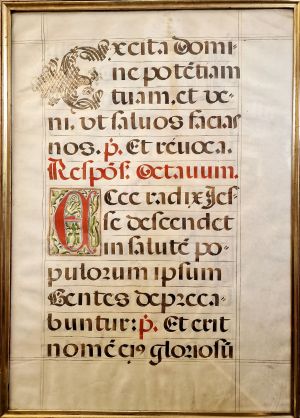 Excita domi-
ne potētiam
tuam, et ve-
ni, vt saluos facias
nos. p̄. Et reuoca.
Respōs. Octauum.
Ecce radix Jes-
se descendet
in salutē po-
pulorum ipsum
Gentes depreca-
buntur: p̄. Et erit
nomē eiꝰ gloriosū